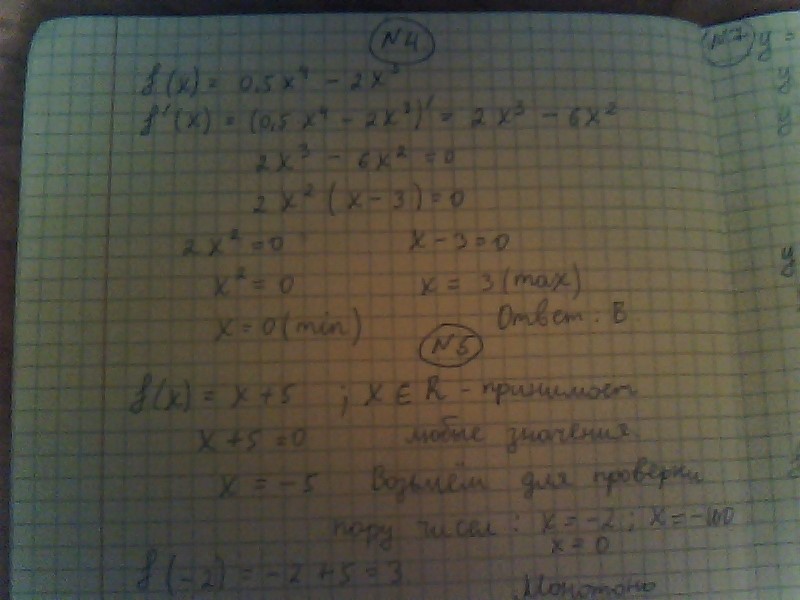 N4
f(x) = 0,5x⁴ - 2x³
f'(x) = (0,5x⁴ - 2x³)' = 2x³ - 6x²
2x³ - 6x² = 0
2x² (x - 3) = 0
2x² = 0 x - 3 = 0
x² = 0 x = 3 (max)
x = 0 (min) Ответ: В
N5
f(x) = x + 5 ; x ∈ R - принимает
x + 5 = 0 любые значения.
x = -5 Возьмём для проверки
пару чисел: x = -2 ; x = -100
x = 0
f(-2) = -2 + 5 = 3
Монотоно
N7 y =